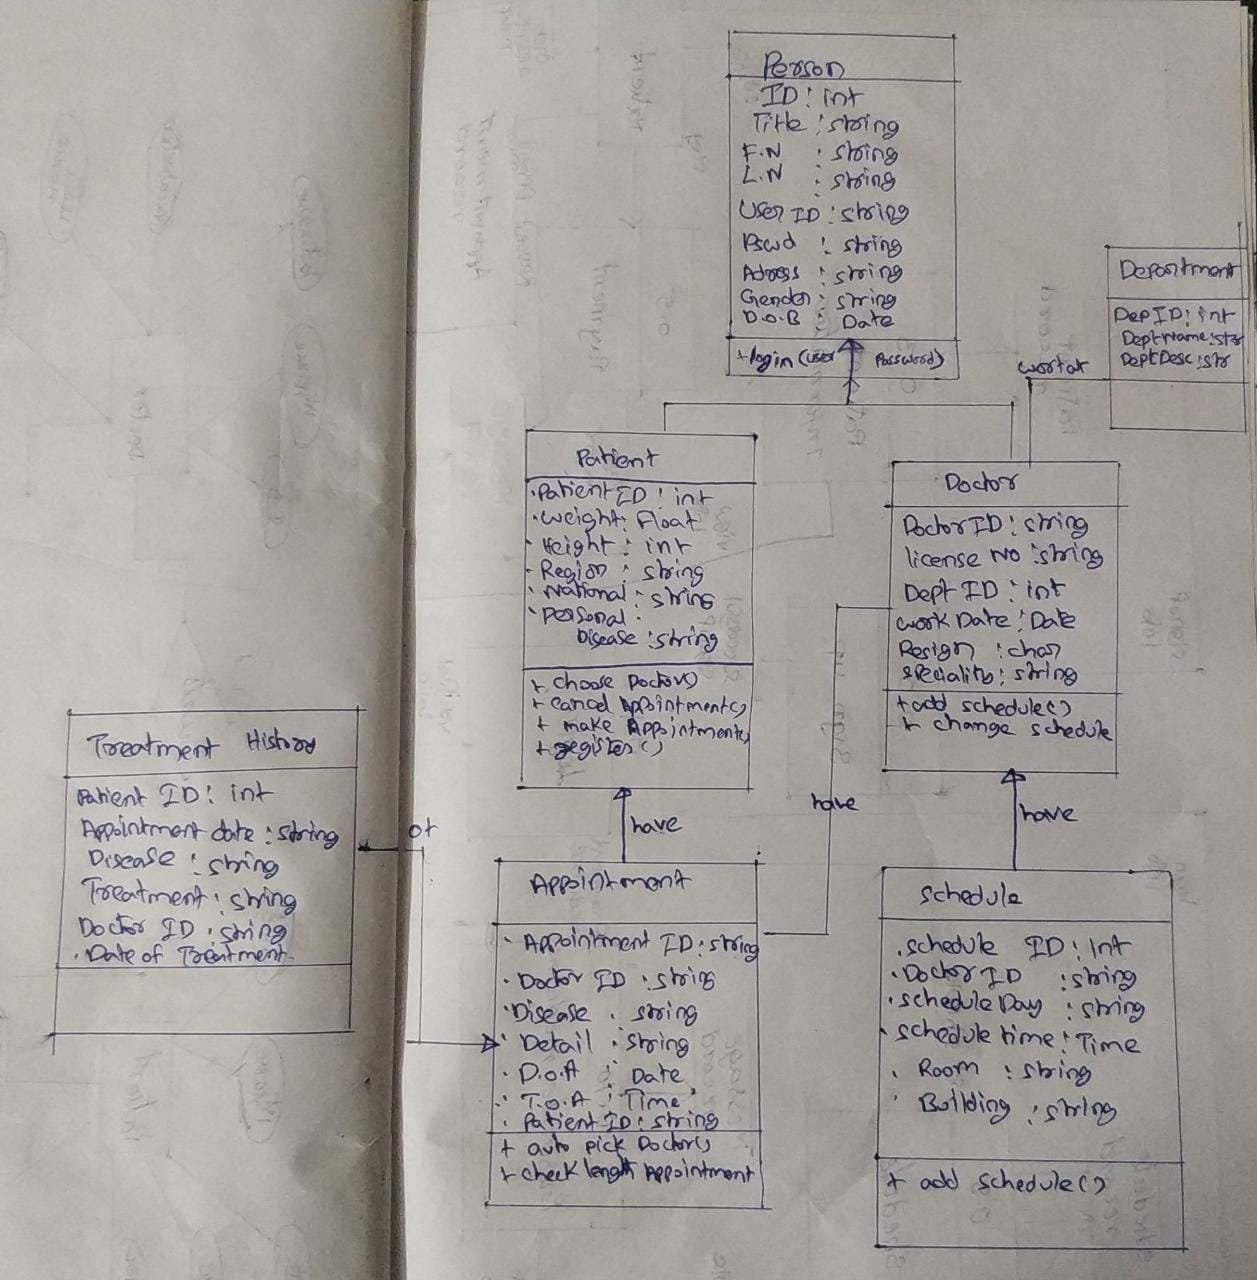 Person
ID : int
Title : string
F.N : string
L.N : string
User ID : string
Pswd : string
Adress : string
Gender : string
D.O.B : Date
+login (user Password)
Department
DepID : int
DeptName : str
DeptDesc : str
work at
Patient
• Patient ID : int
• Weight : Float
• Height : int
• Region : string
• National : string
• Personal
Disease : string
+ choose Doctor()
+ cancel Appointment()
+ make Appointment()
+ register()
Doctor
Doctor ID : string
license No : string
Dept ID : int
work Date : Date
Resign : char
speciality : string
+add schedule()
+ change schedule
Treatment History
Patient ID : int
Appointment date : string
Disease : string
Treatment : string
Doctor ID : string
• Date of Treatment
of
have
have
have
Appointment
• Appointment ID : string
• Doctor ID : string
• Disease : string
• Detail : string
• D.O.A : Date
• T.O.A : Time
• Patient ID : string
+ auto pick Doctor()
+ check length Appointment
Schedule
• schedule ID : Int
• Doctor ID : string
• schedule Day : string
• schedule time : Time
• Room : string
• Building : string
+ add schedule()